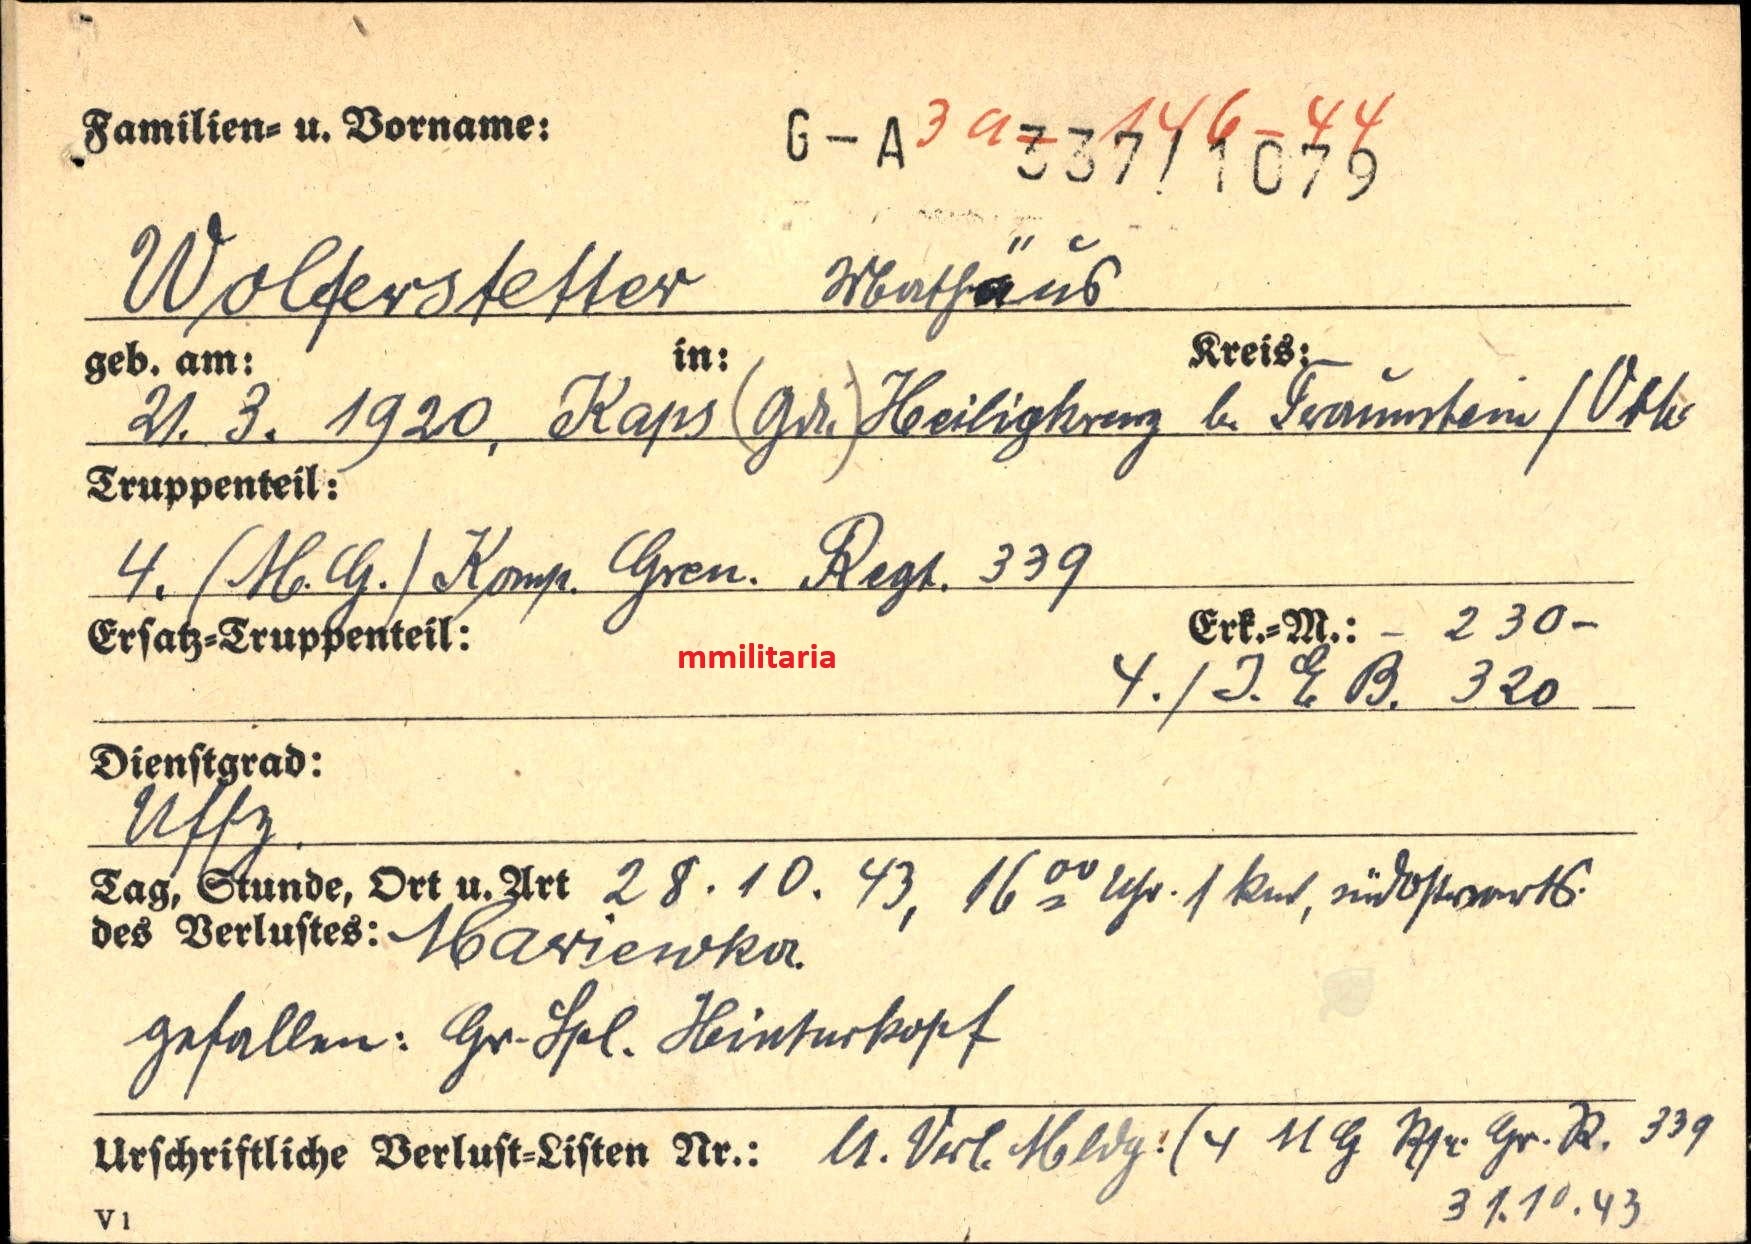 Familien- u. Vorname:
G - A 337/1079
3a - 146 - 44
Wolferstetter Mathäus
geb. am: in: Kreis:
21. 3. 1920, Kaps (Gde.) Heiligkreuz b. Traunstein / Obb.
Truppenteil:
4. (M.G.) Komp. Gren. Regt. 339
Ersatz-Truppenteil: Erk.-M.: - 230 -
mmilitaria
4./J. E. B. 320
Dienstgrad:
Uffz.
Tag, Stunde, Ort u. Art 28. 10. 43, 16 00 Uhr. 1 km, südostwärts
des Verlustes: Mariewka.
gefallen: Gr. Spl. Hinterkopf
Urschriftliche Verlust-Listen Nr.: N. Verl. Meldg: (4 M G Gr. R. 339
31.10.43
V 1